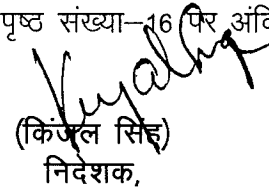 पृष्ठ संख्या–16 पर अंकि
(किंजल सिंह)
निदेशक,